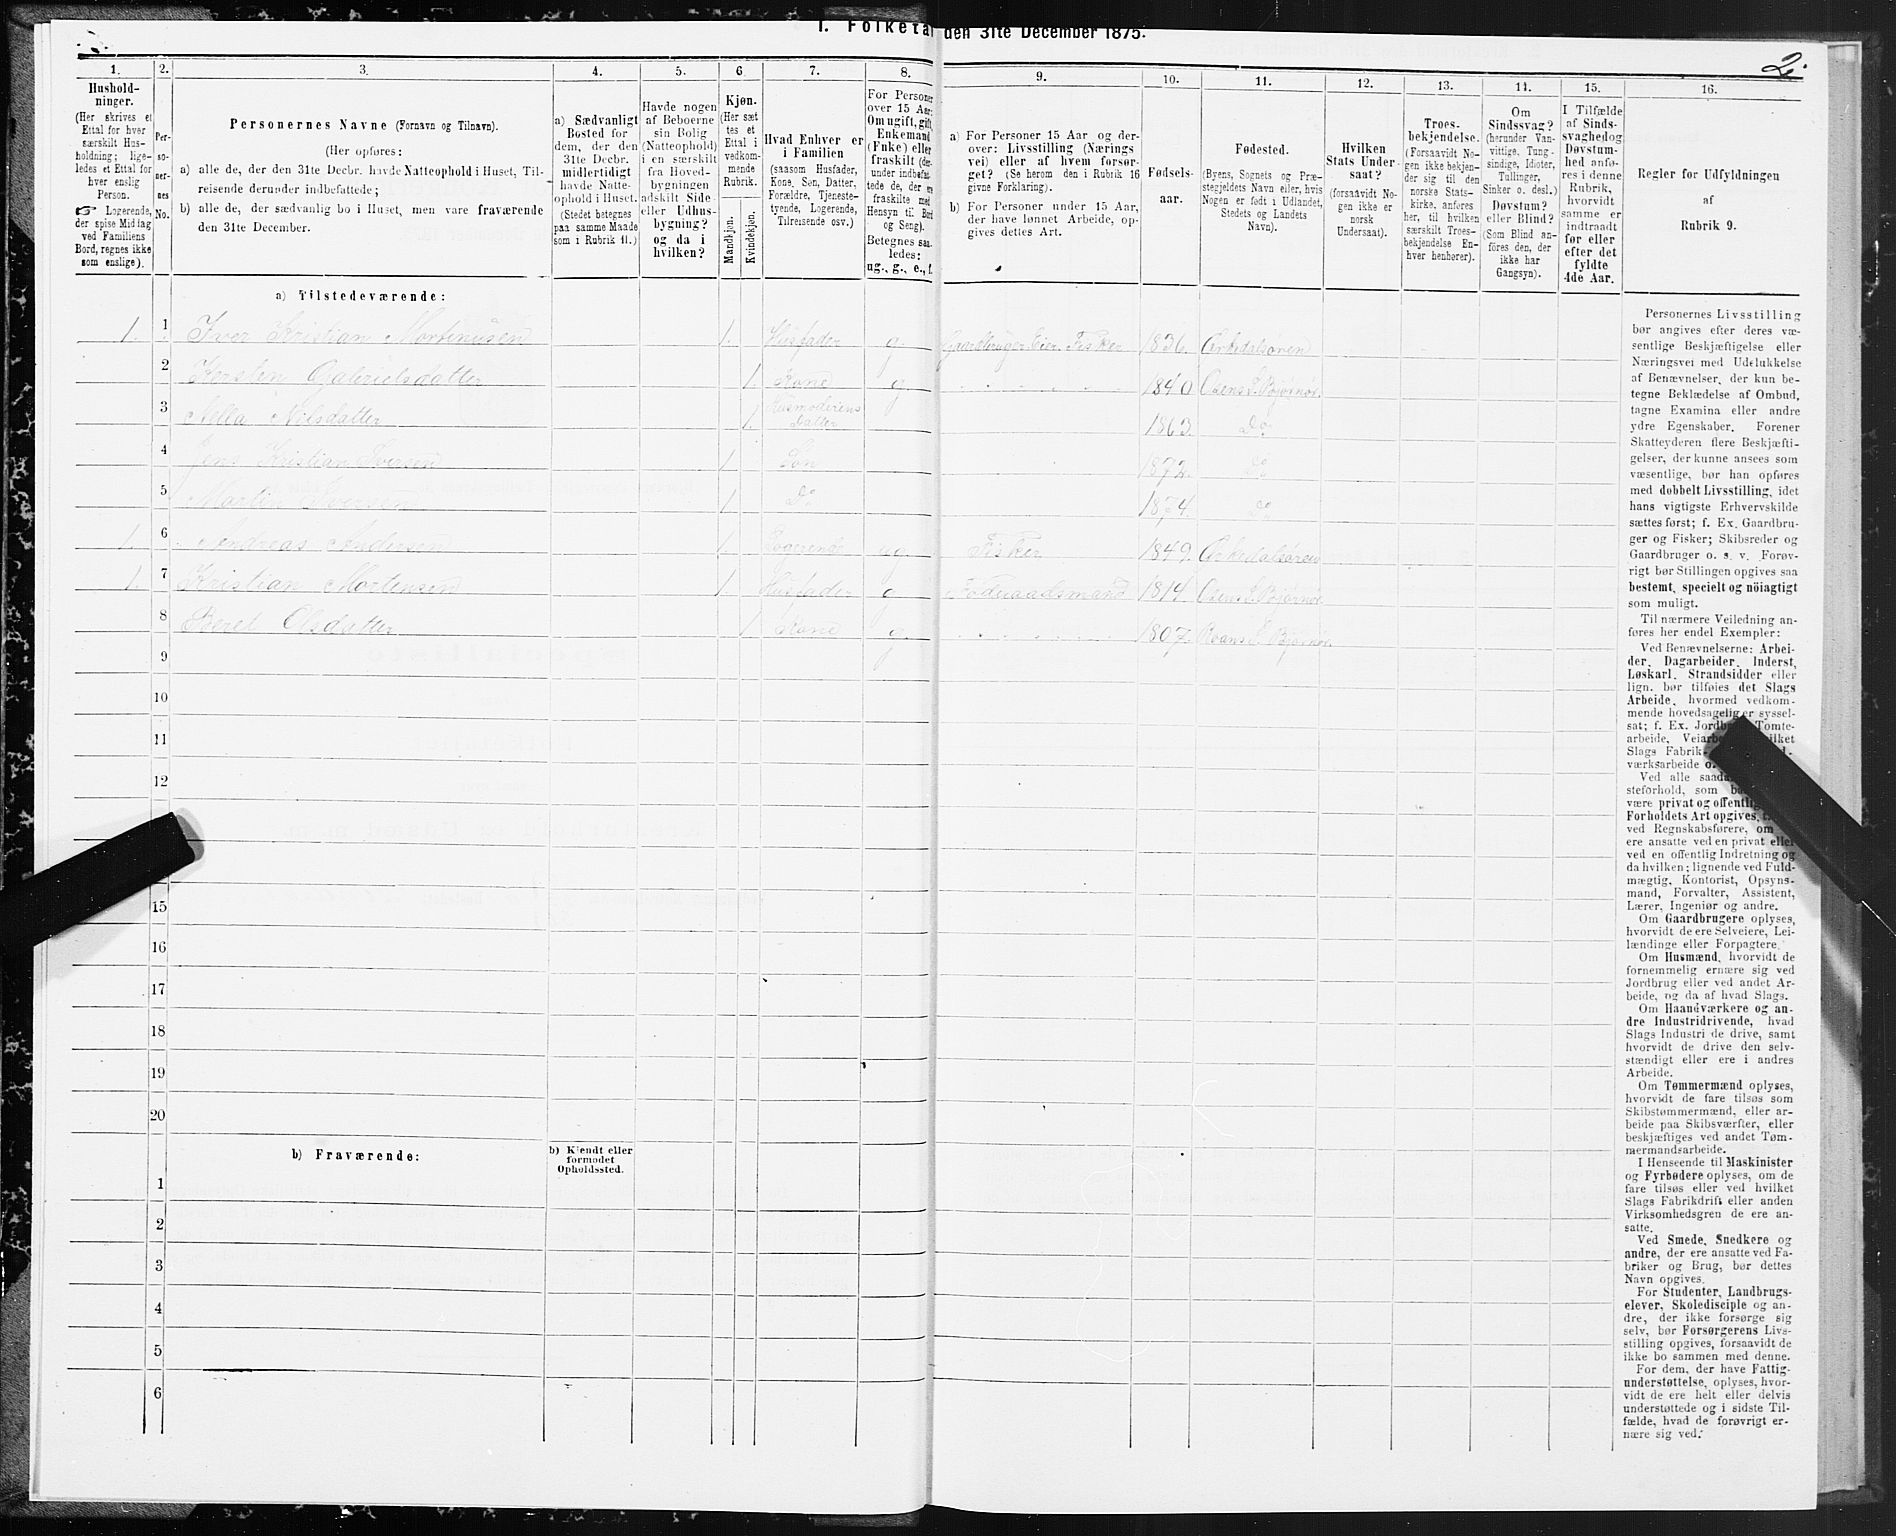 1. Folketal den 31te December 1875.
2.
1.
Hushold-
ninger.
(Her skrives et
Ettal for hver
særskilt Hus-
holdning; lige-
ledes et Ettal for
hver enslig
Person.
☞ Logerende,
der spise Middag
ved Familiens
Bord, regnes ikke
som enslige).
2.
Per-
so-
ner-
nes
No.
3.
Personernes Navne (Fornavn og Tilnavn).
(Her opføres:
a) alle de, der den 31te Decbr. havde Natteophold i Huset, Til-
reisende derunder indbefattede;
b) alle de, der sædvanlig bo i Huset, men vare fraværende
den 31te December.
4.
a) Sædvanligt
Bosted for
dem, der den
31te Decbr.
midlertidigt
havde Natte-
ophold i Huset.
(Stedet betegnes
paa samme Maade
som i Rubrik 11.)
5.
Havde nogen
af Beboerne
sin Bolig
(Natteophold)
i en særskilt
fra Hoved-
bygningen
adskilt Side-
eller Udhus-
bygning?
og da i
hvilken?
6.
Kjøn.
(Her sæt-
tes et
Ettal i
vedkom-
mende
Rubrik.
Mandkjøn.
Kvindekjøn.
7.
Hvad Enhver er
i Familien
(saasom Husfader,
Kone, Søn, Datter,
Forældre, Tjeneste-
tyende, Logerende,
Tilreisende osv.)
8.
For Personer
over 15 Aar:
Om ugift, gift,
Enkemand
(Enke) eller
fraskilt (der-
under indbefat-
tede de, der ere
fraskilte med
Hensyn til Bord
og Seng).
Betegnes saa-
ledes:
ug., g., e., f.
9.
a) For Personer 15 Aar og der-
over: Livsstilling (Nærings-
vei) eller af hvem forsør-
get? (Se herom den i Rubrik 16
givne Forklaring).
b) For Personer under 15 Aar,
der have lønnet Arbeide, op-
gives dettes Art.
10.
Fødsels-
aar.
11.
Fødested.
(Byens, Sognets og Præ-
stegjeldets Navn eller, hvis
Nogen er født i Udlandet,
Stedets og Landets
Navn).
12.
Hvilken
Stats Under-
saat?
(forsaavidt No-
gen ikke er
norsk
Undersaat).
13.
Troes-
bekjendelse.
(Forsaavidt No-
gen ikke bekjen-
der sig til den
norske Stats-
kirke, anføres
her, til hvilken
særskilt Troes-
bekjendelse En-
hver henhører).
14.
Om
Sindssvag?
(herunder Van-
vittige, Tung-
sindige, Idioter,
Tullinger,
Sinker o. desl.)
Døvstum?
eller Blind?
(Som Blind an-
føres den, der
ikke har
Gangsyn).
15.
I Tilfælde
af Sinds-
svaghed og
Døvstum-
hed anfø-
res i denne
Rubrik,
hvorvidt
samme er
indtraadt
før eller
efter det
fyldte
4de Aar.
16.
Regler for Udfyldningen
af
Rubrik 9.
a) Tilstedeværende:
1. 1 Iver Kristian Mortinusen 1. Husfader g. Gaardbruger Eier. Fisker 1836.
2 Kersten Gabrielsdatter 1. Kone g 1840 Osens S. Bjørnør.
3 Nella Nilsdatter 1. Husmoderens Datter 1863. Do
4 Jens Kristian Iversen 1 Søn 1872. Do
5 Martin Iversen 1 Do 1874. Do
1. 6 Andreas Andersen 1. Logerende ug Fisker 1849.
1. 7 Kristian Mortensen 1. Husfader g. Føderaadsmand 1814. Osens S. Bjørnør
8 Beret Olsdatter 1 Kone g. 1807. Roans S. Bjørnør.
9
10
11
12
15
16
17
18
19
20
b) Fraværende:
b) Kjendt eller
formodet
Opholdssted.
1
2
3
4
5
6
Personernes Livsstilling
bør angives efter deres væ-
sentlige Beskjæftigelse eller
Næringsvei med Udelukkelse
af Benævnelser, der kun be-
tegne Beklædelse af Ombud,
tagne Examina eller andre
ydre Egenskaber. Forener
Skatteyderen flere Beskjæfti-
gelser, der kunne ansees som
væsentlige, bør han opføres
med dobbelt Livsstilling, idet
hans vigtigste Erhvervskilde
sættes først; f. Ex. Gaardbru-
ger og Fisker; Skibsreder og
Gaardbruger o. s. v. Forøv-
rigt bør Stillingen opgives saa
bestemt, specielt og nöiagtigt
som muligt.
Til nærmere Veiledning an-
føres her endel Exempler:
Ved Benævnelserne: Arbei-
der, Dagarbeider, Inderst,
Løskarl, Strandsidder eller
lign. bør tilføies det Slags
Arbeide, hvormed vedkom-
mende hovedsagelig er syssel-
sat; f. Ex. Tomte-
arbeide,
Slags Fabrik-
værksarbeide
Ved alle
steforhold, som
være privat og offentlig
Forholdets Art opgives,
ved Regnskabsførere, om
ere ansatte ved en privat eller
ved en offentlig Indretning og
da hvilken; lignende ved Fuld-
mægtig, Kontorist, Opsyns-
mand, Forvalter, Assistent,
Lærer, Ingeniør og andre.
Om Gaardbrugere oplyses,
hvorvidt de ere Selveiere, Lei-
lændinge eller Forpagtere.
Om Husmænd, hvorvidt de
fornemmelig ernære sig ved
Jordbrug eller ved andet Ar-
beide, og da af hvad Slags.
Om Haandværkere og an-
dre Industridrivende, hvad
Slags Industri de drive, samt
hvorvidt de drive den selv-
stændigt eller ere i andres
Arbeide.
Om Tømmermænd oplyses,
hvorvidt de fare tilsøs som
Skibstømmermænd, eller ar-
beide paa Skibsværfter, eller
beskjæftiges ved andet Tøm-
mermandsarbeide.
I Henseende til Maskinister
og Fyrbødere oplyses, om de
fare tilsøs eller ved hvilket
Slags Fabrikdrift eller anden
Virksomhedsgren de ere an-
satte.
Ved Smede, Snedkere og
andre, der ere ansatte ved Fa-
briker og Brug, bør dettes
Navn opgives.
For Studenter, Landbrugs-
elever, Skoledisciple og an-
dre, der ikke forsørge sig
selv, bør Forsørgerens Livs-
stilling opgives, forsaavidt de
ikke bo sammen med denne.
For dem, der have Fattig-
understøttelse, oplyses, hvor-
vidt de ere helt eller delvis
understøttede og i sidste Til-
fælde, hvad de forøvrigt er-
nære sig ved.